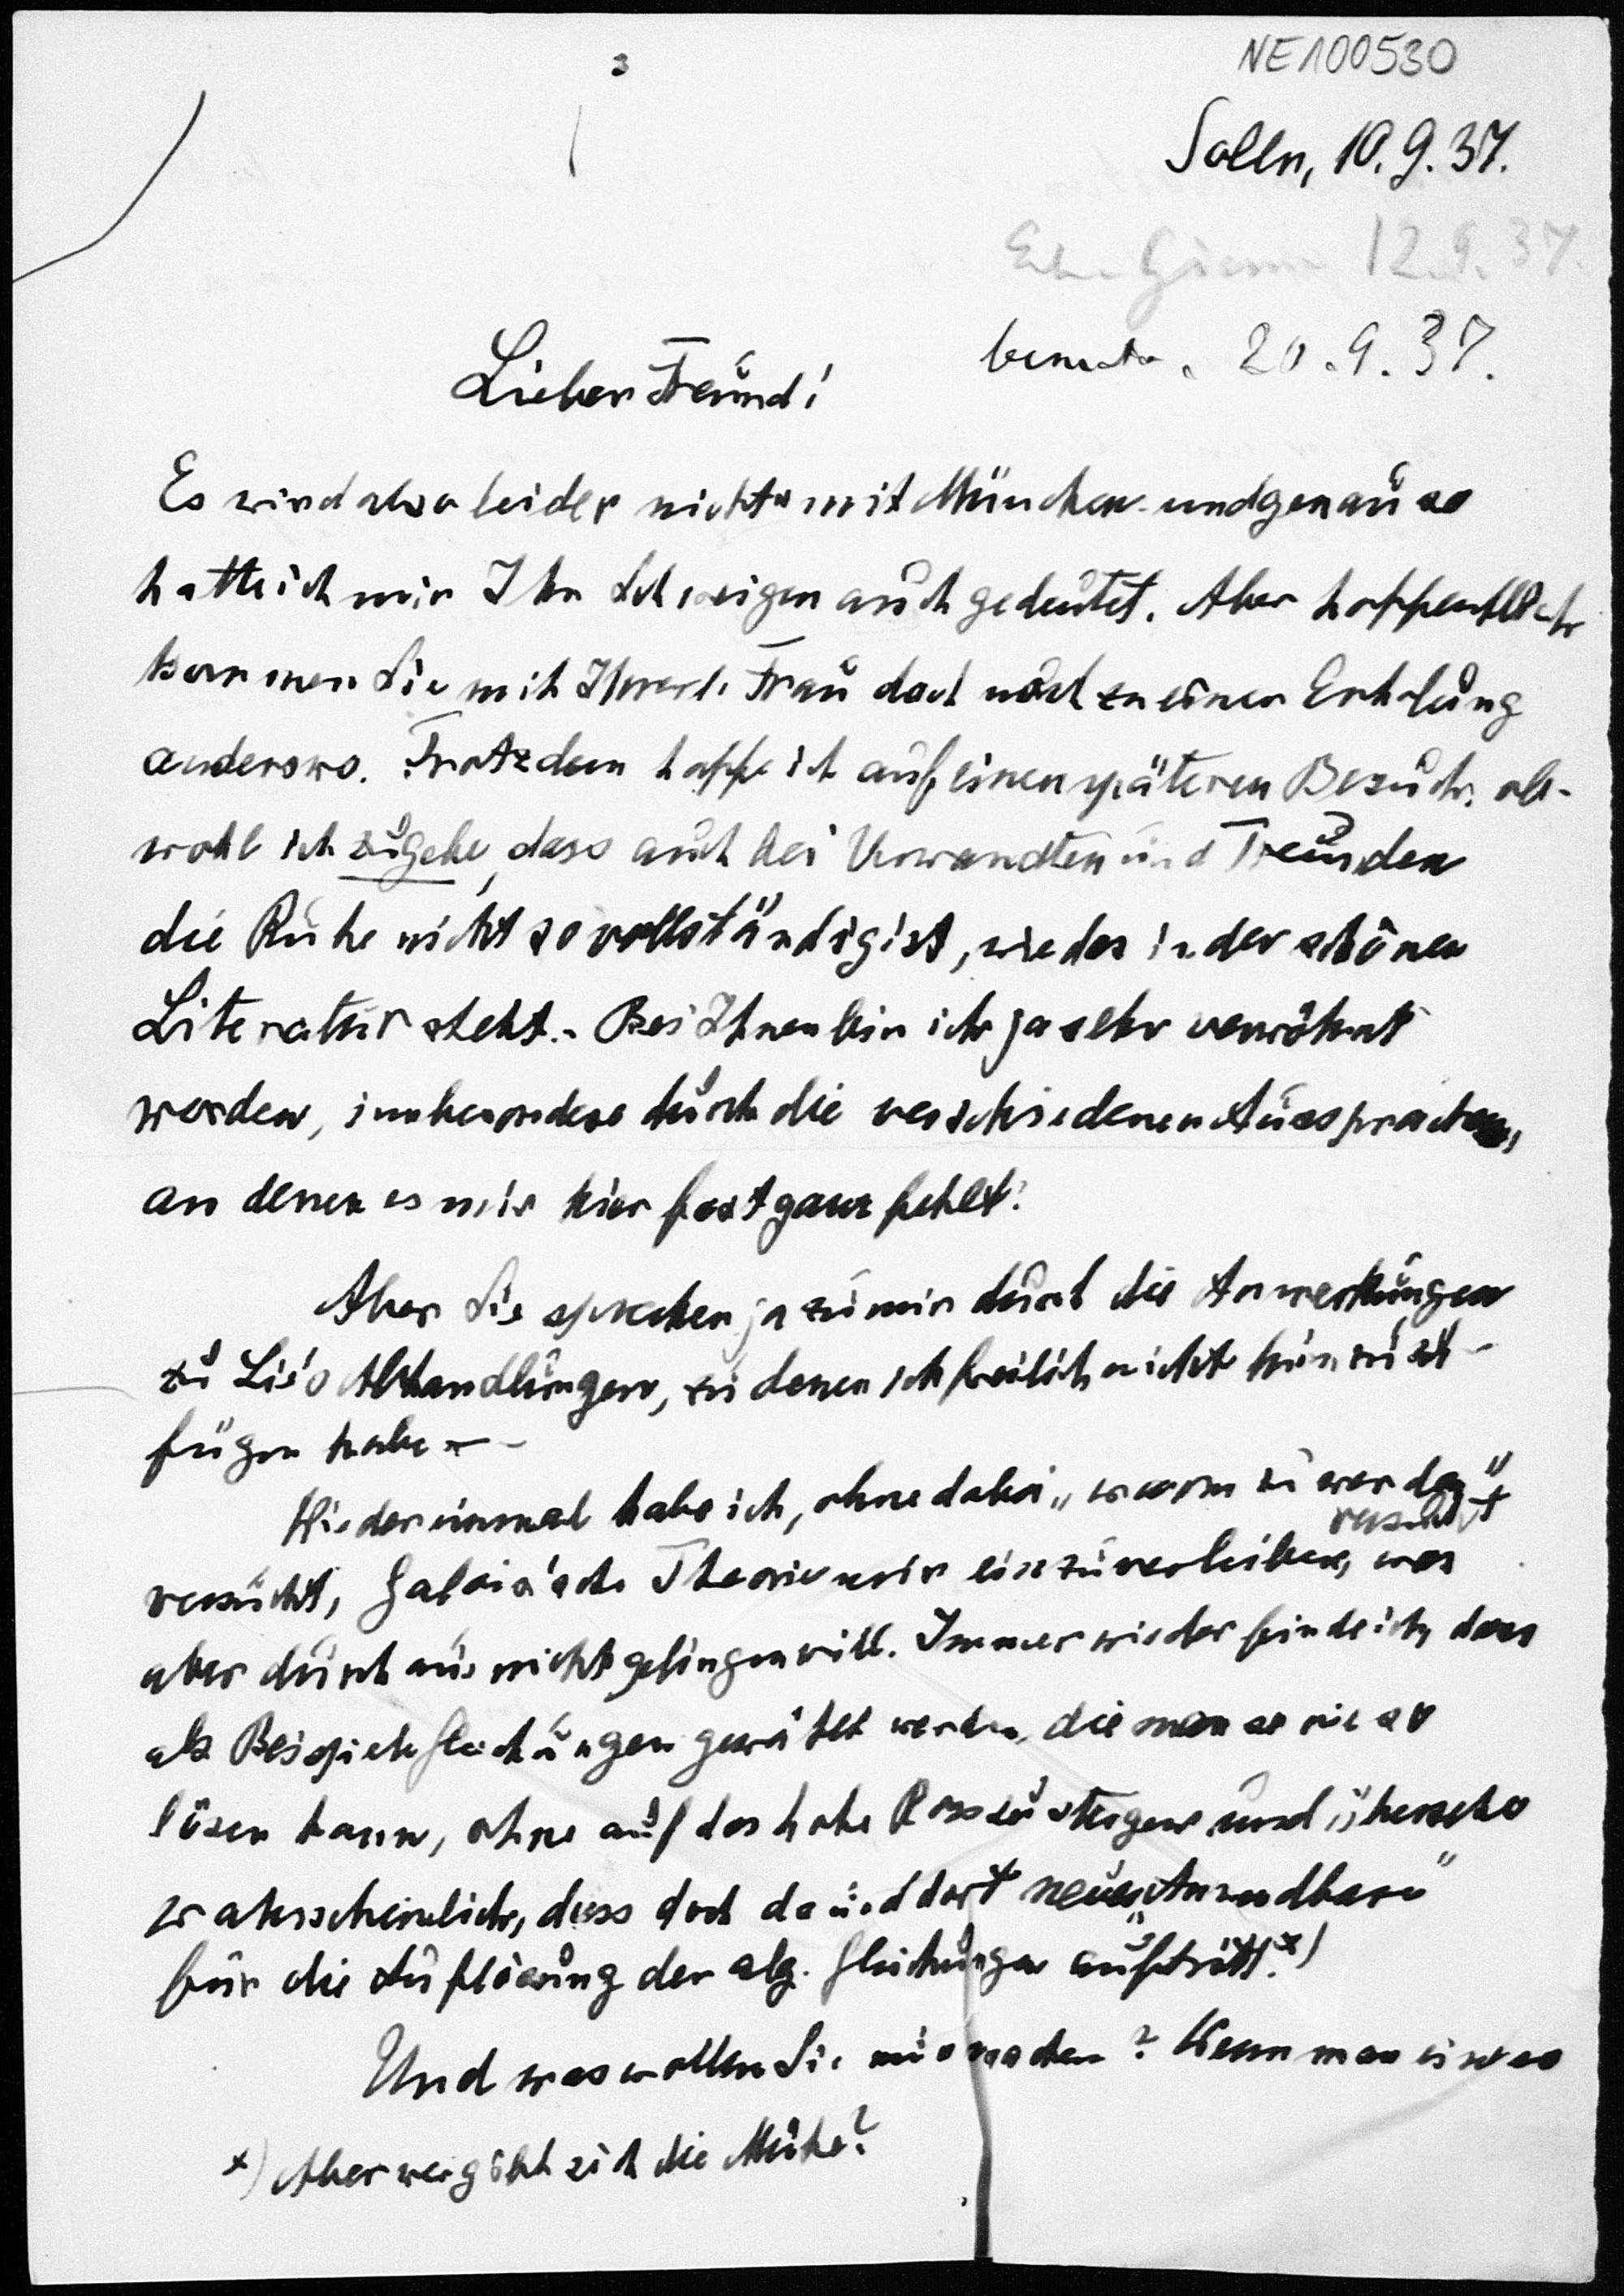 NE100530
Solln, 10.9.37.
12.9.37.
20.9.37.
Lieber Freund!
Es wird also leider nichts mit München und genau so
hatte ich mir Ihr Schweigen auch gedeutet. Aber hoffentlich
kommen Sie mit Ihrer l. Frau doch noch zu einer Erholung
anderswo. Trotzdem hoffe ich auf einen späteren Besuch, ob-
wohl ich zugebe, dass auch bei Verwandten und Freunden
die Ruhe nicht so vollständig ist, wie das in der schönen
Literatur steht. Bei Ihnen bin ich ja sehr verwöhnt
worden, insbesondere durch die verschiedenen Aussprachen,
an denen es mir hier fast ganz fehlt!
Aber Sie sprechen ja zu mir durch die Anmerkungen
zu Lie's Abhandlungen, zu denen ich freilich nichts hinzuzu-
fügen habe. –
Wieder einmal habe ich, ohne dabei „warm zu werden"
versucht, Galois'sche Theorie mir einzuverleiben, was
aber durchaus nicht gelingen will. Immer wieder finde ich, dass
als Beispiele Gleichungen gewählt werden, die man so wie so
lösen kann, ohne auf das hohe Ross zu steigen und übersehe
wahrscheinlich, dass doch da und dort neues „Anwendbare"
für die Auflösung der alg. Gleichungen auftritt.*)
Und was wollen Sie machen? Wenn man
*) Aber wer gibt sich die Mühe?